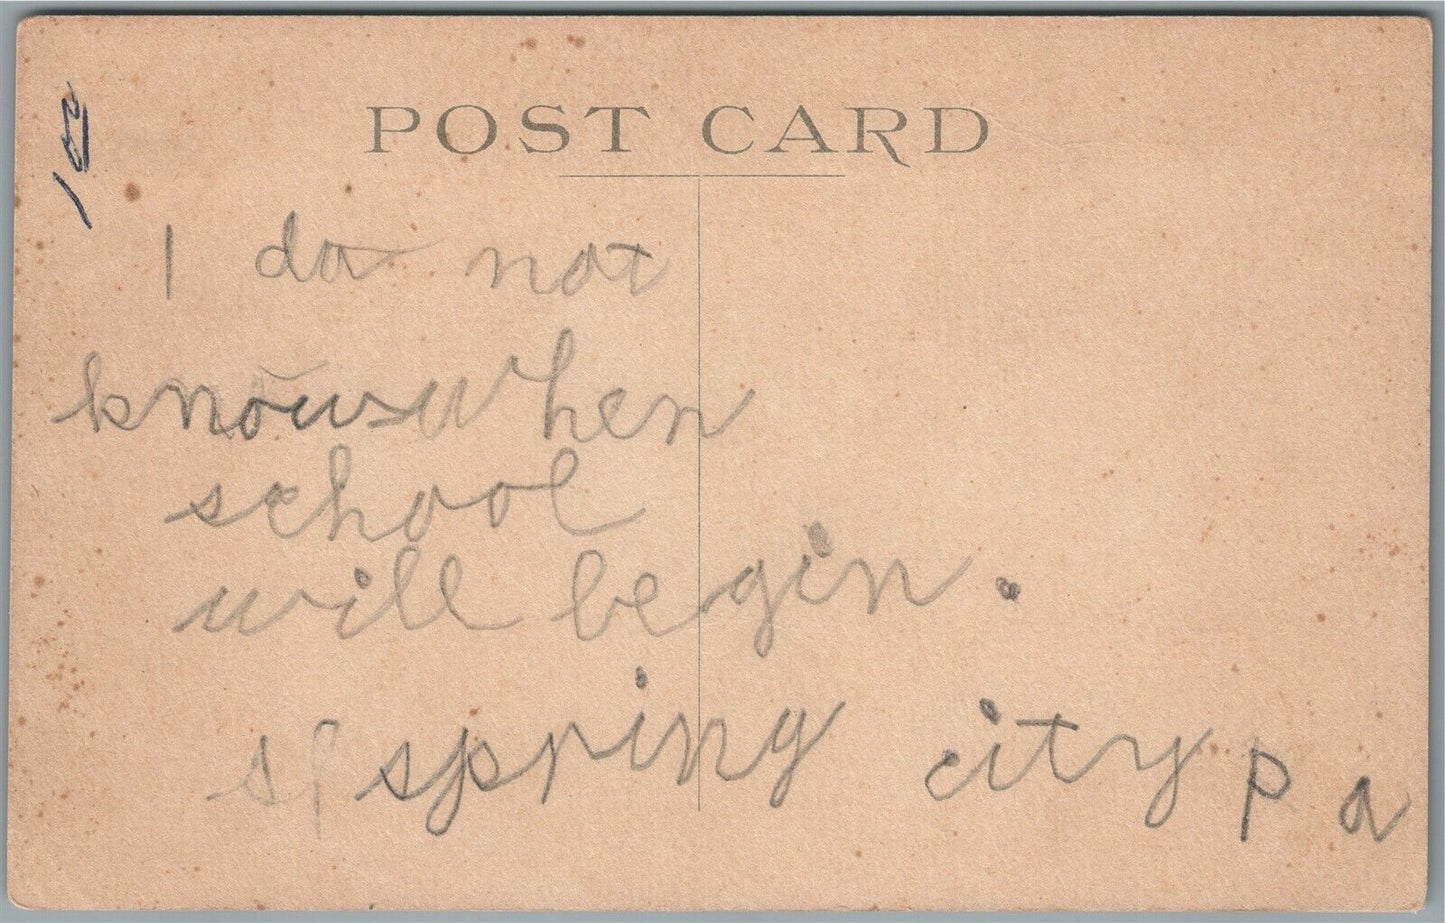 POST CARD
I do not
know when
school
will begin.
sp spring city pa